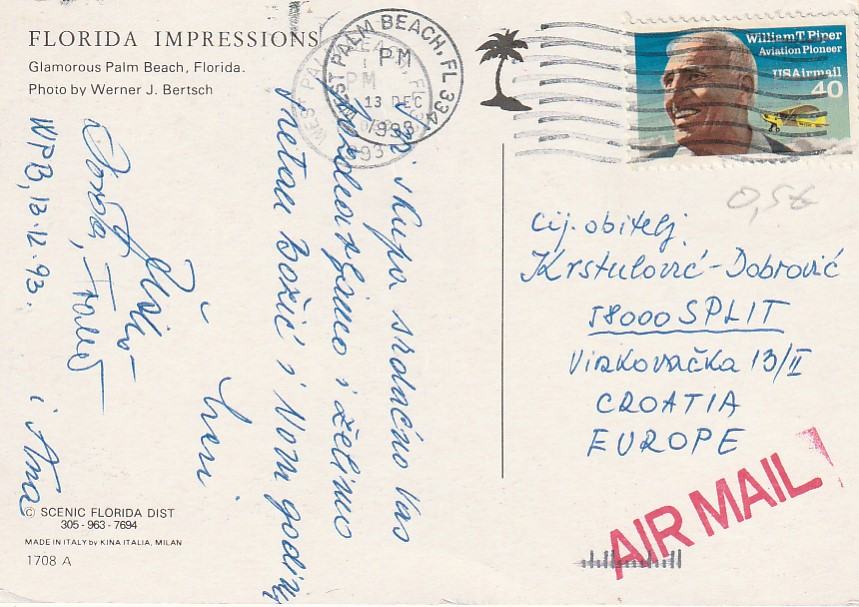 FLORIDA IMPRESSIONS
Glamorous Palm Beach, Florida.
Photo by Werner J. Bertsch
WEST PALM BEACH, FL 334
PM
13 DEC
1993
William T. Piper
Aviation Pioneer
USAirmail
40
0,5€
Svi skupa srdačno Vas
pozdravljamo i želimo
sretan Božić i Novu godinu
i Ana
WPB, 13.12.93.
Cij. obitelj
Krstulović-Dobrović
58000 SPLIT
Vinkovačka 13/II
CROATIA
EUROPE
AIR MAIL
© SCENIC FLORIDA DIST
305-963-7694
MADE IN ITALY by KINA ITALIA, MILAN
1708 A